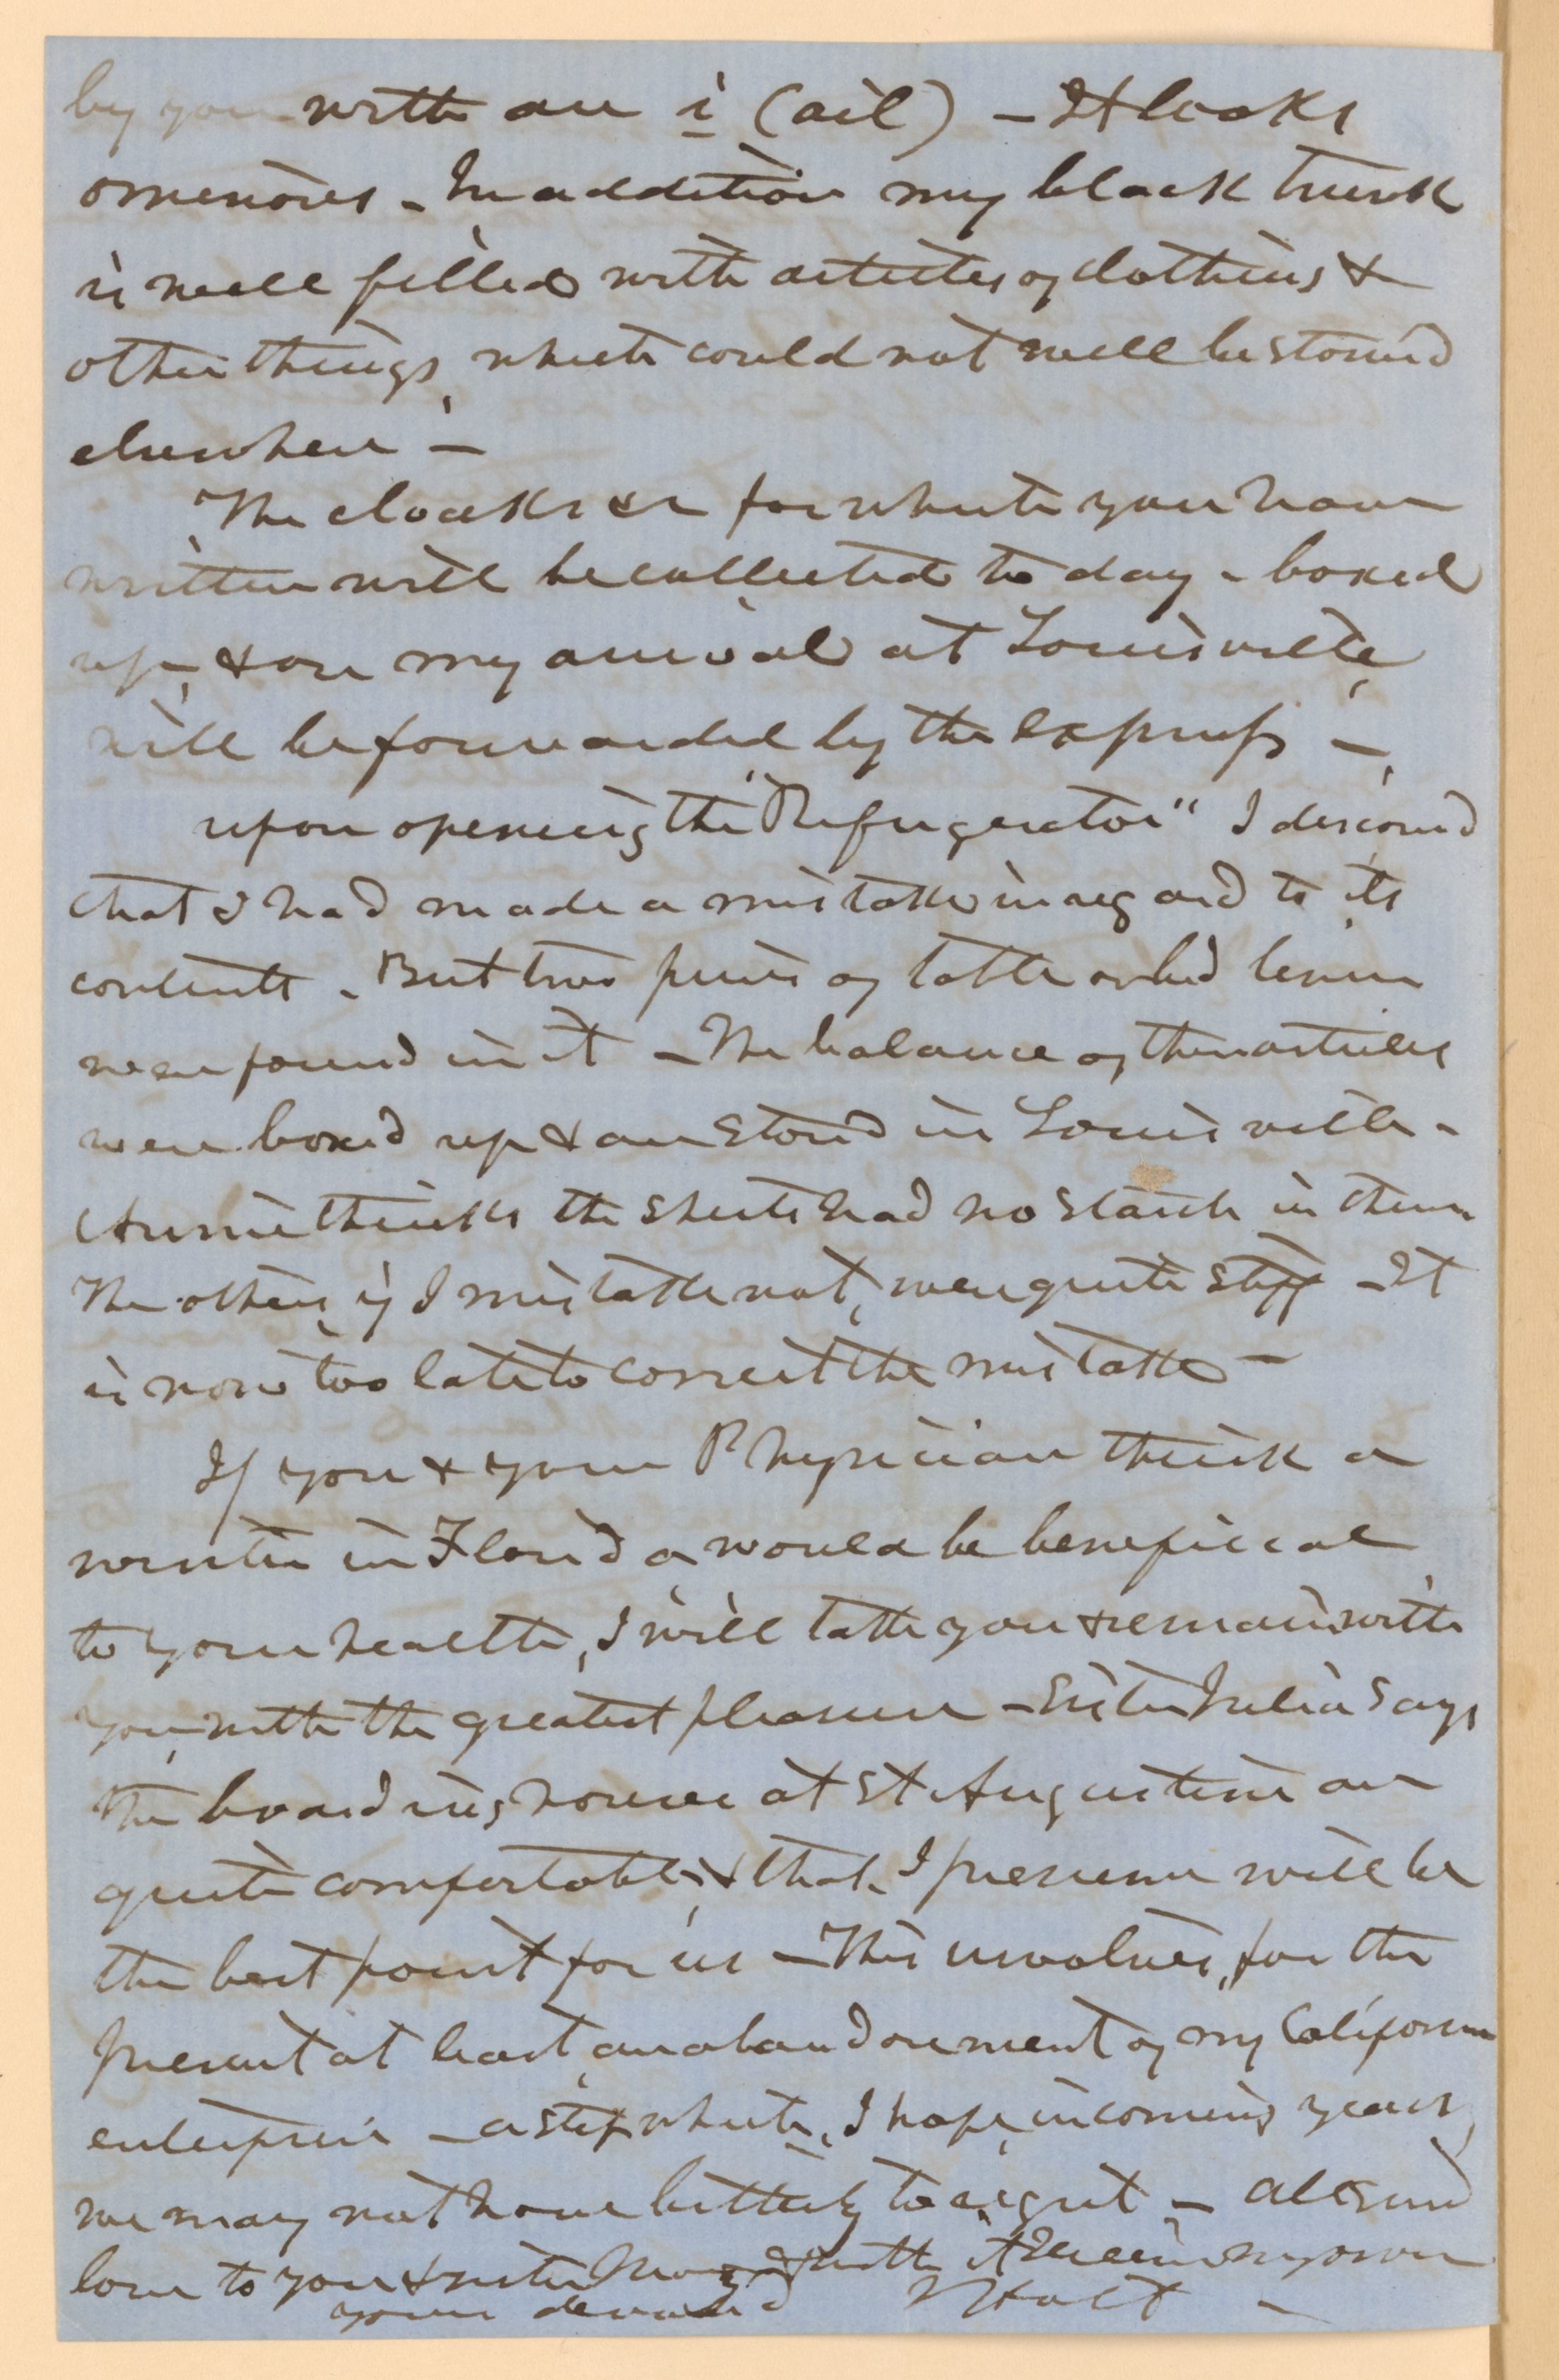 by you with an i (ail) – It looks
omenous. In addition my black trunk
is well filled with articles of clothing &
other things, which could not well be stowed
elsewhere –
The cloaks &c for which you have
written will be collected to day – boxed
up, & on my arrival at Louisville,
will be forwarded by the express –
upon opening the "Refrigerator" I discovered
that I had made a mistake in regard to its
contents. But two pieces of table or bed linen
were found in it – The balance of these articles
were boxed up & are stored in Louisville –
Annie thinks the sheets had no starch in them
The others, if I mistake not, were quite stiff – It
is now too late to correct the mistake –
If you & your Physician think a
winter in Florida would be beneficial
to your health, I will take you & remain with
you, with the greatest pleasure – Sister Julia says
the boarding houses at St Augustine are
quite comfortable, & that I presume will be
the best point for us – This involves, for the
present at least, an abandonment of my California
enterprise – a step which, I hope, in coming years,
we may not have bitterly to regret – All send
love to you & sister Mary & with it I send my own
your devoted J Holt –